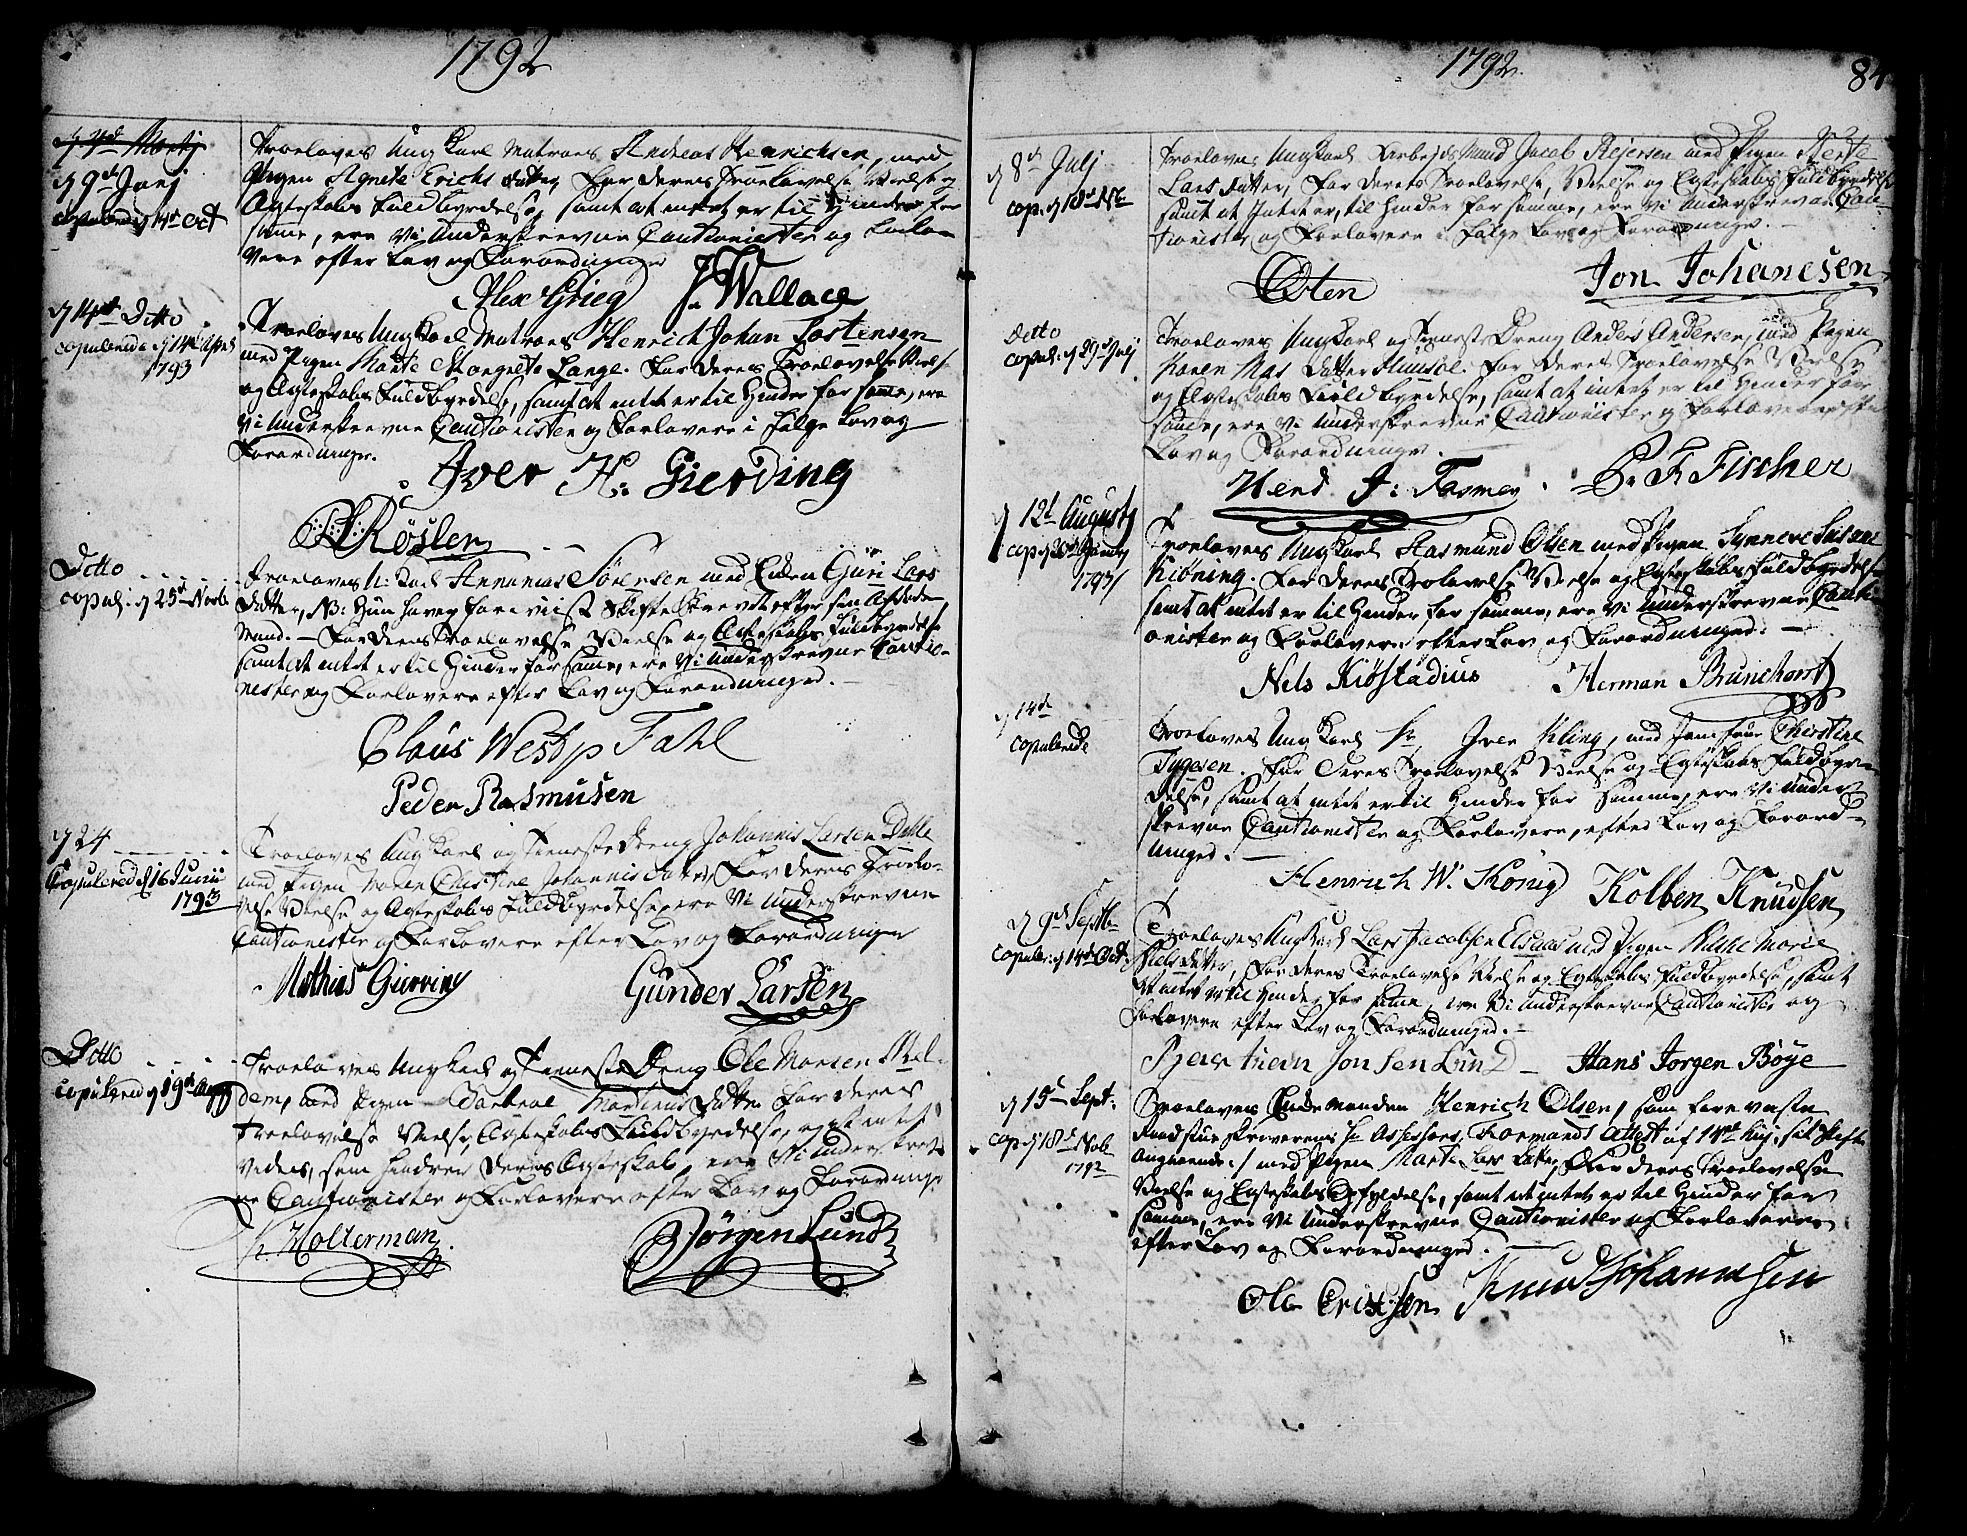 1792
d 7de Martj
d 9de Junj
copulered d 14de Oct
Troeloves Ung Karl Matroes Andreas Henrichsen, med
Pigen Agnete Erichs datter, For deres Troelovelse Vielse og
Ægteskabs Fuldbyrdelse, samt at intet er til Hinder for
same, ere Vi Underskrevne Cautionister og Forlo-
vere efter Lov og Forordninger
Alex Grieg J. Wallace
d 14de Ditto
copulered d 14de April
1793
Troeloves Ung Karl Matroes Henrich Johan Tostensen
med Pigen Marte Margrete Lange. For deres Troelovelse Viels
og Ægteskabs Fuldbyrdelse, samt at intet er til Hinder for same, ere
Vi Underskrevne Cautionister og Forlovere i Følge Lov og
Forordninger.
Iver H: Gierding
Røslen
Ditto
copul: d 25de Novb
Troeloves U: Karl Annanias Sörensen med Enken Guri Lars
datter, NB: Hun haver foreviist Skifte Skrevet efter sin Afdøde
Mand. – For deres Troelovelse Vielse og Ægteskabs Fuldbyrdelse
samt at intet er til Hinder for same, ere Vi Underskrevne Cautio-
nister og Forlovere efter Lov og Forordninger. –
Claus Westp Fahl
Peder Rasmusen
d 24
Copulered d 16 Junii
1793
Troeloves Ung Karl og Tieneste Dreng Johannis Larsen Dahle
med Pigen Maren Christine Johannis datter, For deres Troelo-
velse Vielse og Ægteskabs Fuldbyrdelse, ere Vi Underskrevne
Cautionister og Forlovere efter Lov og Forordninger
Mathias Gierving Gunder Larsen
Ditto
copulered d 19de Aug
Troeloves Ungkarl og Tieneste Dreng Ole Monsen Mel-
dem, med Pigen Barbroe Martinus datter For deres
Troelovelse Vielse, Ægteskabs Fuldbyrdelse, og at intet
vides, som hindrer deres Ægteskab, ere Vi Underskrev-
ne Cautionister og Forlovere efter Lov og Forordninger
H. Molterman Jørgen Lund
1792.
84
d 8de Julj
cop. d 18de
Troeloves Ungkarl Arbejds Mand Jacob Rejersen med Pigen Merte
Lars datter, For deres Troelovelse, Vielse og Egteskabs Fuldbyrdelse
samt at Intet er, til Hinder for samme, ere Vi Underskrevne Cau-
tionister og Forlovere i Følge Lov og Forordninger. –
Østen Jon Johanesen
Ditto
copul: d 29de Julj
Troeloves Ungkarl og Tieneste Dreng Anders Andersen, med Pigen
Karen Mas datter For deres Troelovelse Vielse
og Ægteskabs Fuldbyrdelse, samt at intet er til Hinder for
same, ere Vi Underskrevne Cautionister og Forlovere efter
Lov og Forordninger.
Hend J: Fasmer. F Fischer
d 12t Augustj
cop d 20de
Troeloves Ung Karl Rasmund Olsen med Pigen Synneve Susanne
Kiøning. For deres Trolovelse Vielse og Egteskabs Fuldbyrdelse
samt at intet er til Hinder for samme, ere Vi Underskrevne Cauti-
onister og Forlovere efter Lov og Forordninger. –
Nels Kiöstadius Herman Brunchorst
d 14de
copulerede
Troeloves Ung Karl Hr Iver Kling, med Jomfrue Christine
Tygesen. For Deres Troelovelse Vielse og Egteskabs Fuldbyr-
delse, samt at intet er til Hinder for samme, ere Vi Under
skrevne Cautionister og Forlovere, efter Lov og Forord-
ninger. –
Henrich W. König Kolben Knudsen
d 9de Septb:
copuler: d 14de Oct:
Troeloves Ungkarl Lars Jacobsen Elsaas med Pigen Marie
Niels datter, For deres Troelovelse Vielse og Egteskabs Fuldbyrdelse, samt
at intet er til Hinder for same, ere Vi Underskrevne Cautionister og
Forlovere efter Lov og Forordninger. –
Jonsen Lund – Hans Jorgen Böye
d 15de Sept:
cop d 18de Nob
1792
Troeloves Enke Manden Henrich Olsen, som foreviste
Raadstueskriverens Hr Assessors, Formands Attest af 14de hujs, sit Skifte
angaaende:/ med Pigen Marte Lars datter, For deres Troelovelse
Vielse og Egteskabs Opfyldelse, samt at intet er til Hinder for
samme, ere Vi Underskrevne Cautionister og Forlovere
efter Lov og Forordninger. –
Ole Erichsen Knud Johannesen